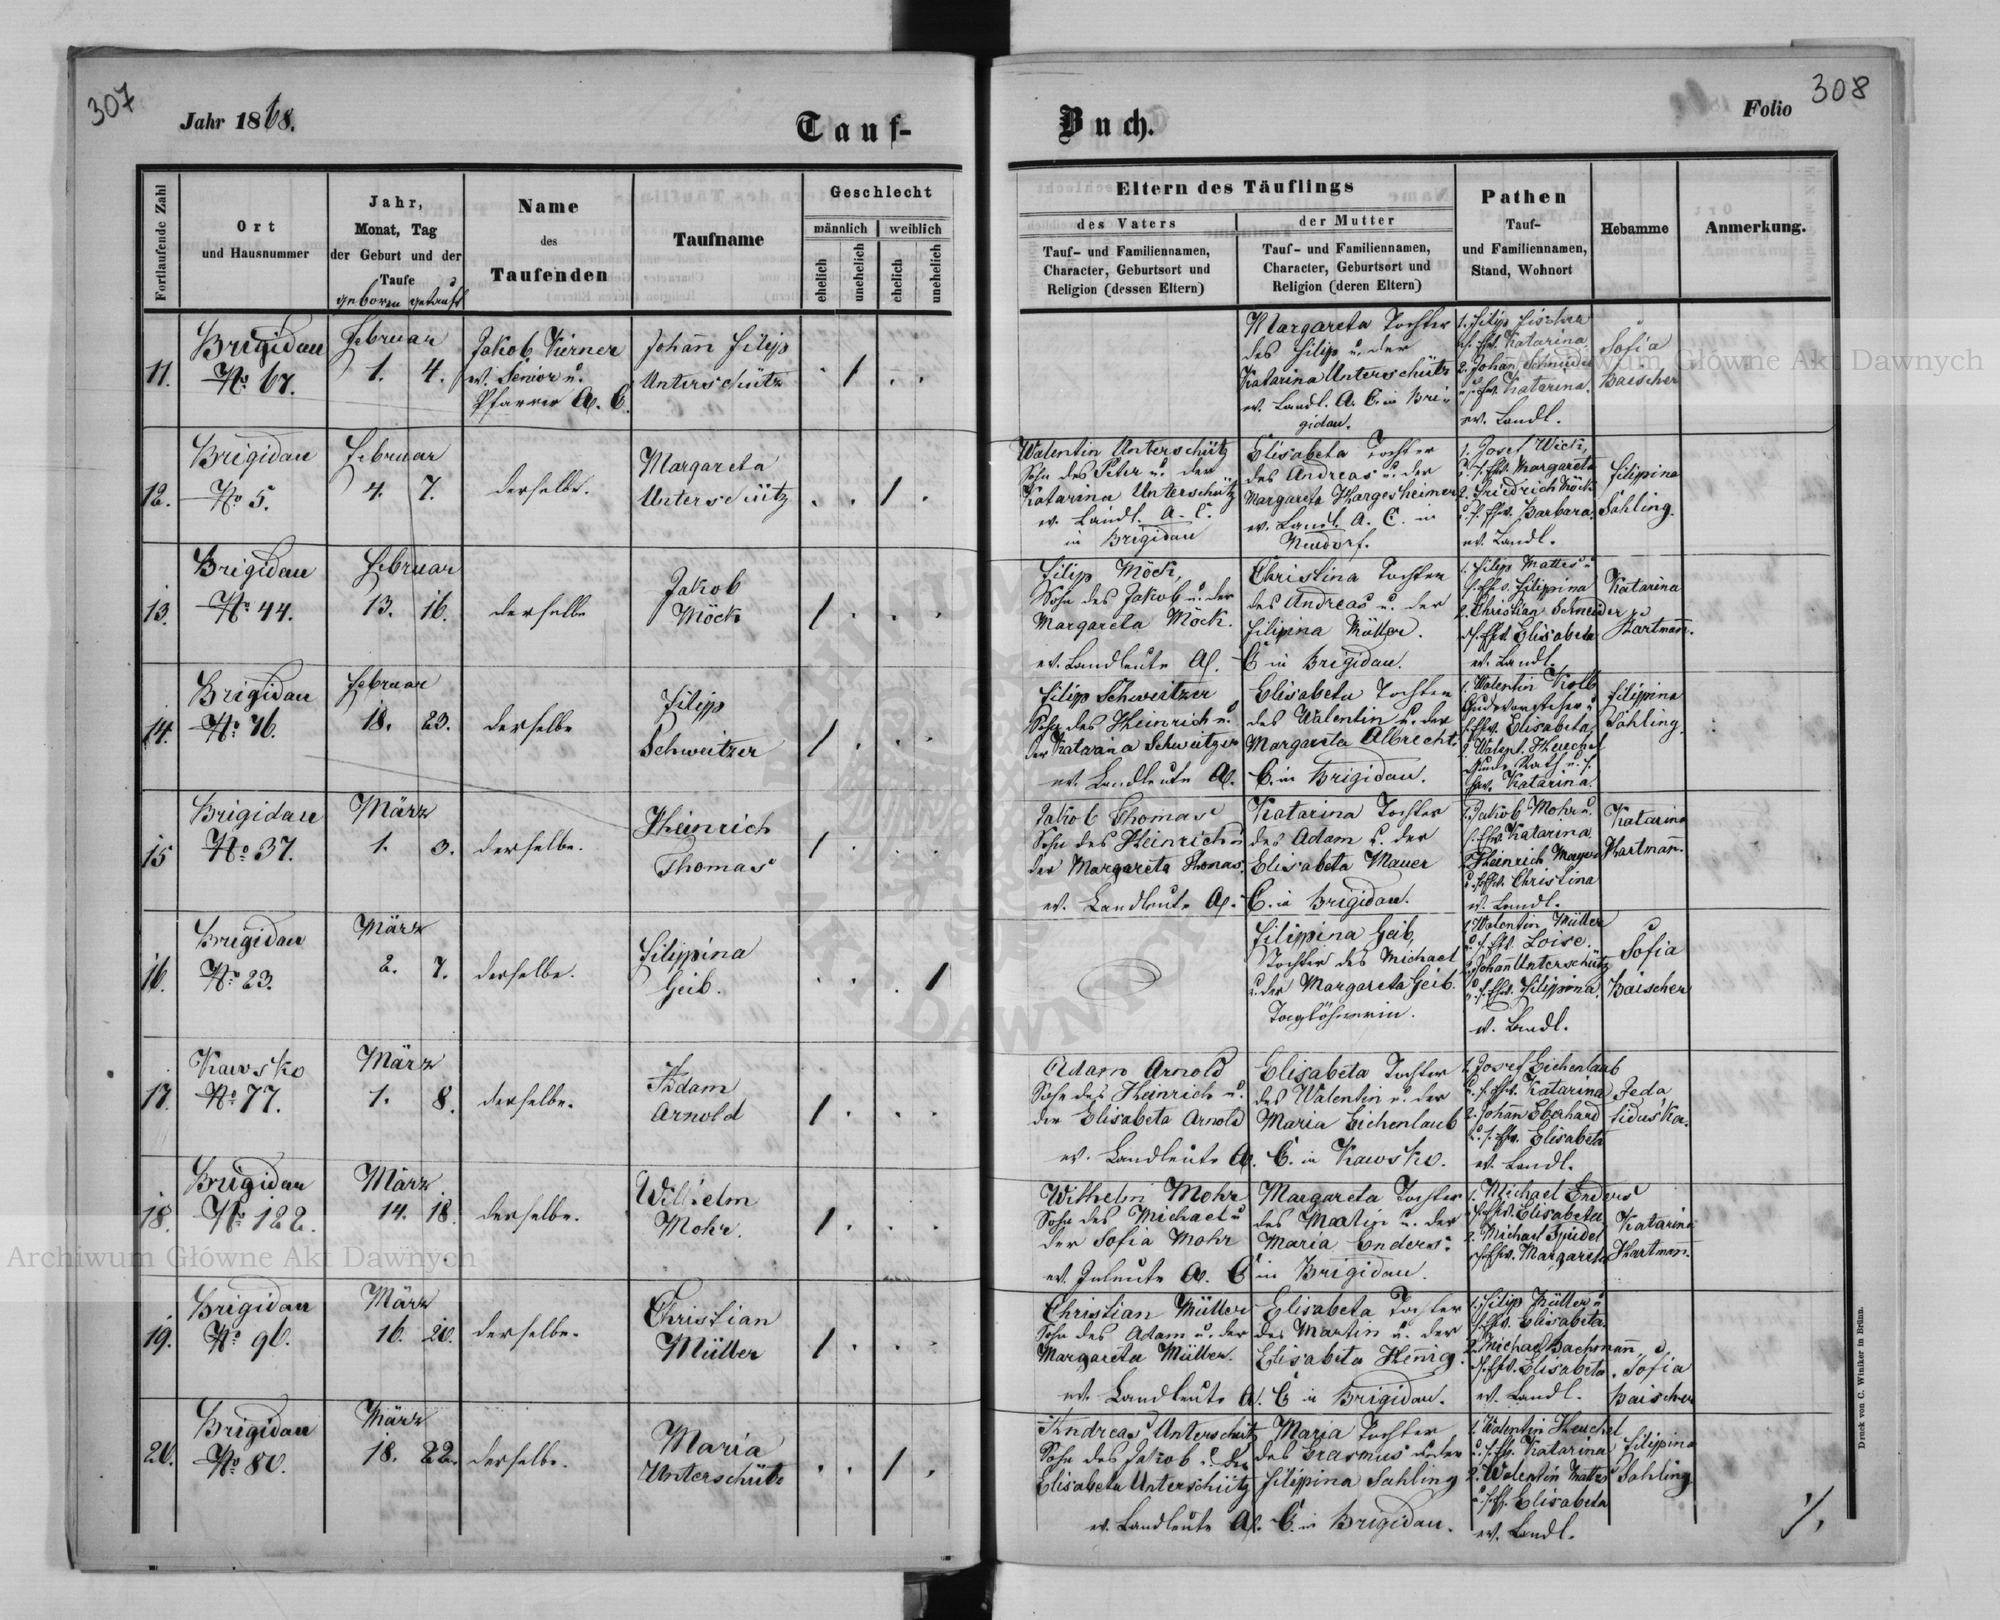 307
Jahr 1868.
Tauf-
Buch.
Folio
308
Fortlaufende Zahl
Ort
und Hausnummer
Jahr,
Monat, Tag
der Geburt und der
Taufe
geboren getauft
Name
des
Taufenden
Taufname
Geschlecht
männlich weiblich
ehelich
unehelich
ehelich
unehelich
Eltern des Täuflings
des Vaters
der Mutter
Tauf- und Familiennamen,
Character, Geburtsort und
Religion (dessen Eltern)
Tauf- und Familiennamen,
Character, Geburtsort und
Religion (deren Eltern)
Pathen
Tauf-
und Familiennamen,
Stand, Wohnort
Hebamme
Anmerkung.
11.
Brigidau
No 67.
Februar
1. 4.
Jakob Kierner
ev. Senior u.
Pfarrer A. C.
Johañ Filip
Unterschütz
Margareta Tochter
des Filip u. der
Katarina Unterschütz
ev. Landl. A. C. in Bri-
gidau.
1. Filip Fischer
Katarina.
2. Johañ Schneider
Katarina.
ev. Landl.
Sofia
Baischer
12.
Brigidau
No 5.
Februar
4. 7.
derselbe.
Margareta
Unterschütz
Walentin Unterschütz
Sohn des Peter u. der
Katarina Unterschütz
ev. Landl. A. C.
in Brigidau
Elisabeta Tochter
des Andreas u. der
Margareta Hargesheimer
ev. Landl. A. C. in
Neudorf.
1. Josef Wick,
u. s. Ehw. Margareta
2. Friedrich Möck
u. s. Ehw. Barbara.
ev. Landl.
Filipina
Sahling.
13.
Brigidau
No 44.
Februar
13. 16.
derselbe
Jakob
Möck
Filip Möck,
Sohn des Jakob u. der
Margareta Möck.
ev. Landleute A.
Christina Tochter
des Andreas u. der
Filipina Müller.
C. in Brigidau.
1. Filip Mattes u.
s. Ehw. Filippina
2. Christian Schneider
s. Ehw. Elisabeta
ev. Landl.
Katarina
Hartmañ.
14.
Brigidau
No 76.
Februar
18. 23.
derselbe
Filipp
Schweitzer
Filip Schweitzer
Sohn des Heinrich u.
der Katarina Schweitzer
ev. Landleute A.
Elisabeta Tochter
des Walentin u. der
Margareta Albrecht.
C. in Brigidau.
1. Walentin Kolb
s. Ehw. Elisabeta,
2. Walent. Heuchel
Ehw. Katarina.
Filippina
Sahling.
15
Brigidau
No 37.
März
1. 3.
derselbe.
Heinrich
Thomas
Jakob Thomas
Sohn des Heinrich u.
der Margareta Thomas.
ev. Landleute A.
Katarina Tochter
des Adam u. der
Elisabeta Mauer
C. in Brigidau.
1. Jakob Mohr u.
s. Ehw. Katarina
2. Heinrich Mayer
u. s. Ehw. Christina
ev. Landl.
Katarina
Hartmañ.
16.
Brigidau
No 23.
März
2. 7.
derselbe.
Filippina
Geib.
Filippina Geib,
Tochter des Michael
u. der Margareta Geib.
Taglöhnerin.
1. Walentin Müller
u. s. Ehw. Loise.
2. Johañ Unterschütz
u. s. Ehw. Filippina.
ev. Landl.
Sofia
Baischer
17.
Kawsko
No 77.
März
1. 8.
derselbe.
Adam
Arnold
Adam Arnold
Sohn des Heinrich u.
der Elisabeta Arnold
ev. Landleute A.
Elisabeta Tochter
des Walentin u. der
Maria Eichenlaub
C. in Kawsko.
1. Josef Eichenlaub
u. s. Ehw. Katarina
2. Johañ Eberhard
u. s. Ehw. Elisabeta
ev. Landl.
Feda
18.
Brigidau
No 122.
März
14. 18.
derselbe.
Wilhelm
Mohr.
Wilhelm Mohr
Sohn des Michael u
der Sofia Mohr
ev. Inleute A. C
Margareta Tochter
des Martin u. der
Maria Enders.
in Brigidau.
1. Michael Enders
u. s. Ehw. Elisabeta
2. Michael Speidel
u. s. Ehw. Margareta
Katarina
Hartmañ.
19.
Brigidau
No 96.
März
16. 20.
derselbe.
Christian
Müller
Christian Müller
Sohn des Adam u. der
Margareta Müller.
ev. Landleute A.
Elisabeta Tochter
des Martin u. der
Elisabeta Heñig.
C. in Brigidau.
1. Filip Müller u
s. Ehw. Elisabeta.
2. Michael Bachmañ u
s. Ehw. Elisabeta.
ev. Landl.
Sofia
Baischer
20.
Brigidau
No 80.
März
18. 22.
derselbe.
Maria
Unterschütz
Andreas Unterschütz
Sohn des Jakob u. der
Elisabeta Unterschütz
ev. Landleute A.
Maria Tochter
des Erasmus u. der
Filippina Sahling
C. in Brigidau.
1. Walentin Heuchel
u. s. Ehw. Katarina
2. Walentin Mattes
u. s. Ehw. Elisabeta
ev. Landl.
Filippina
Sahling
Druck von C. Winiker in Brünn.
Archiwum Główne Akt Dawnych
Archiwum Główne Akt Dawnych